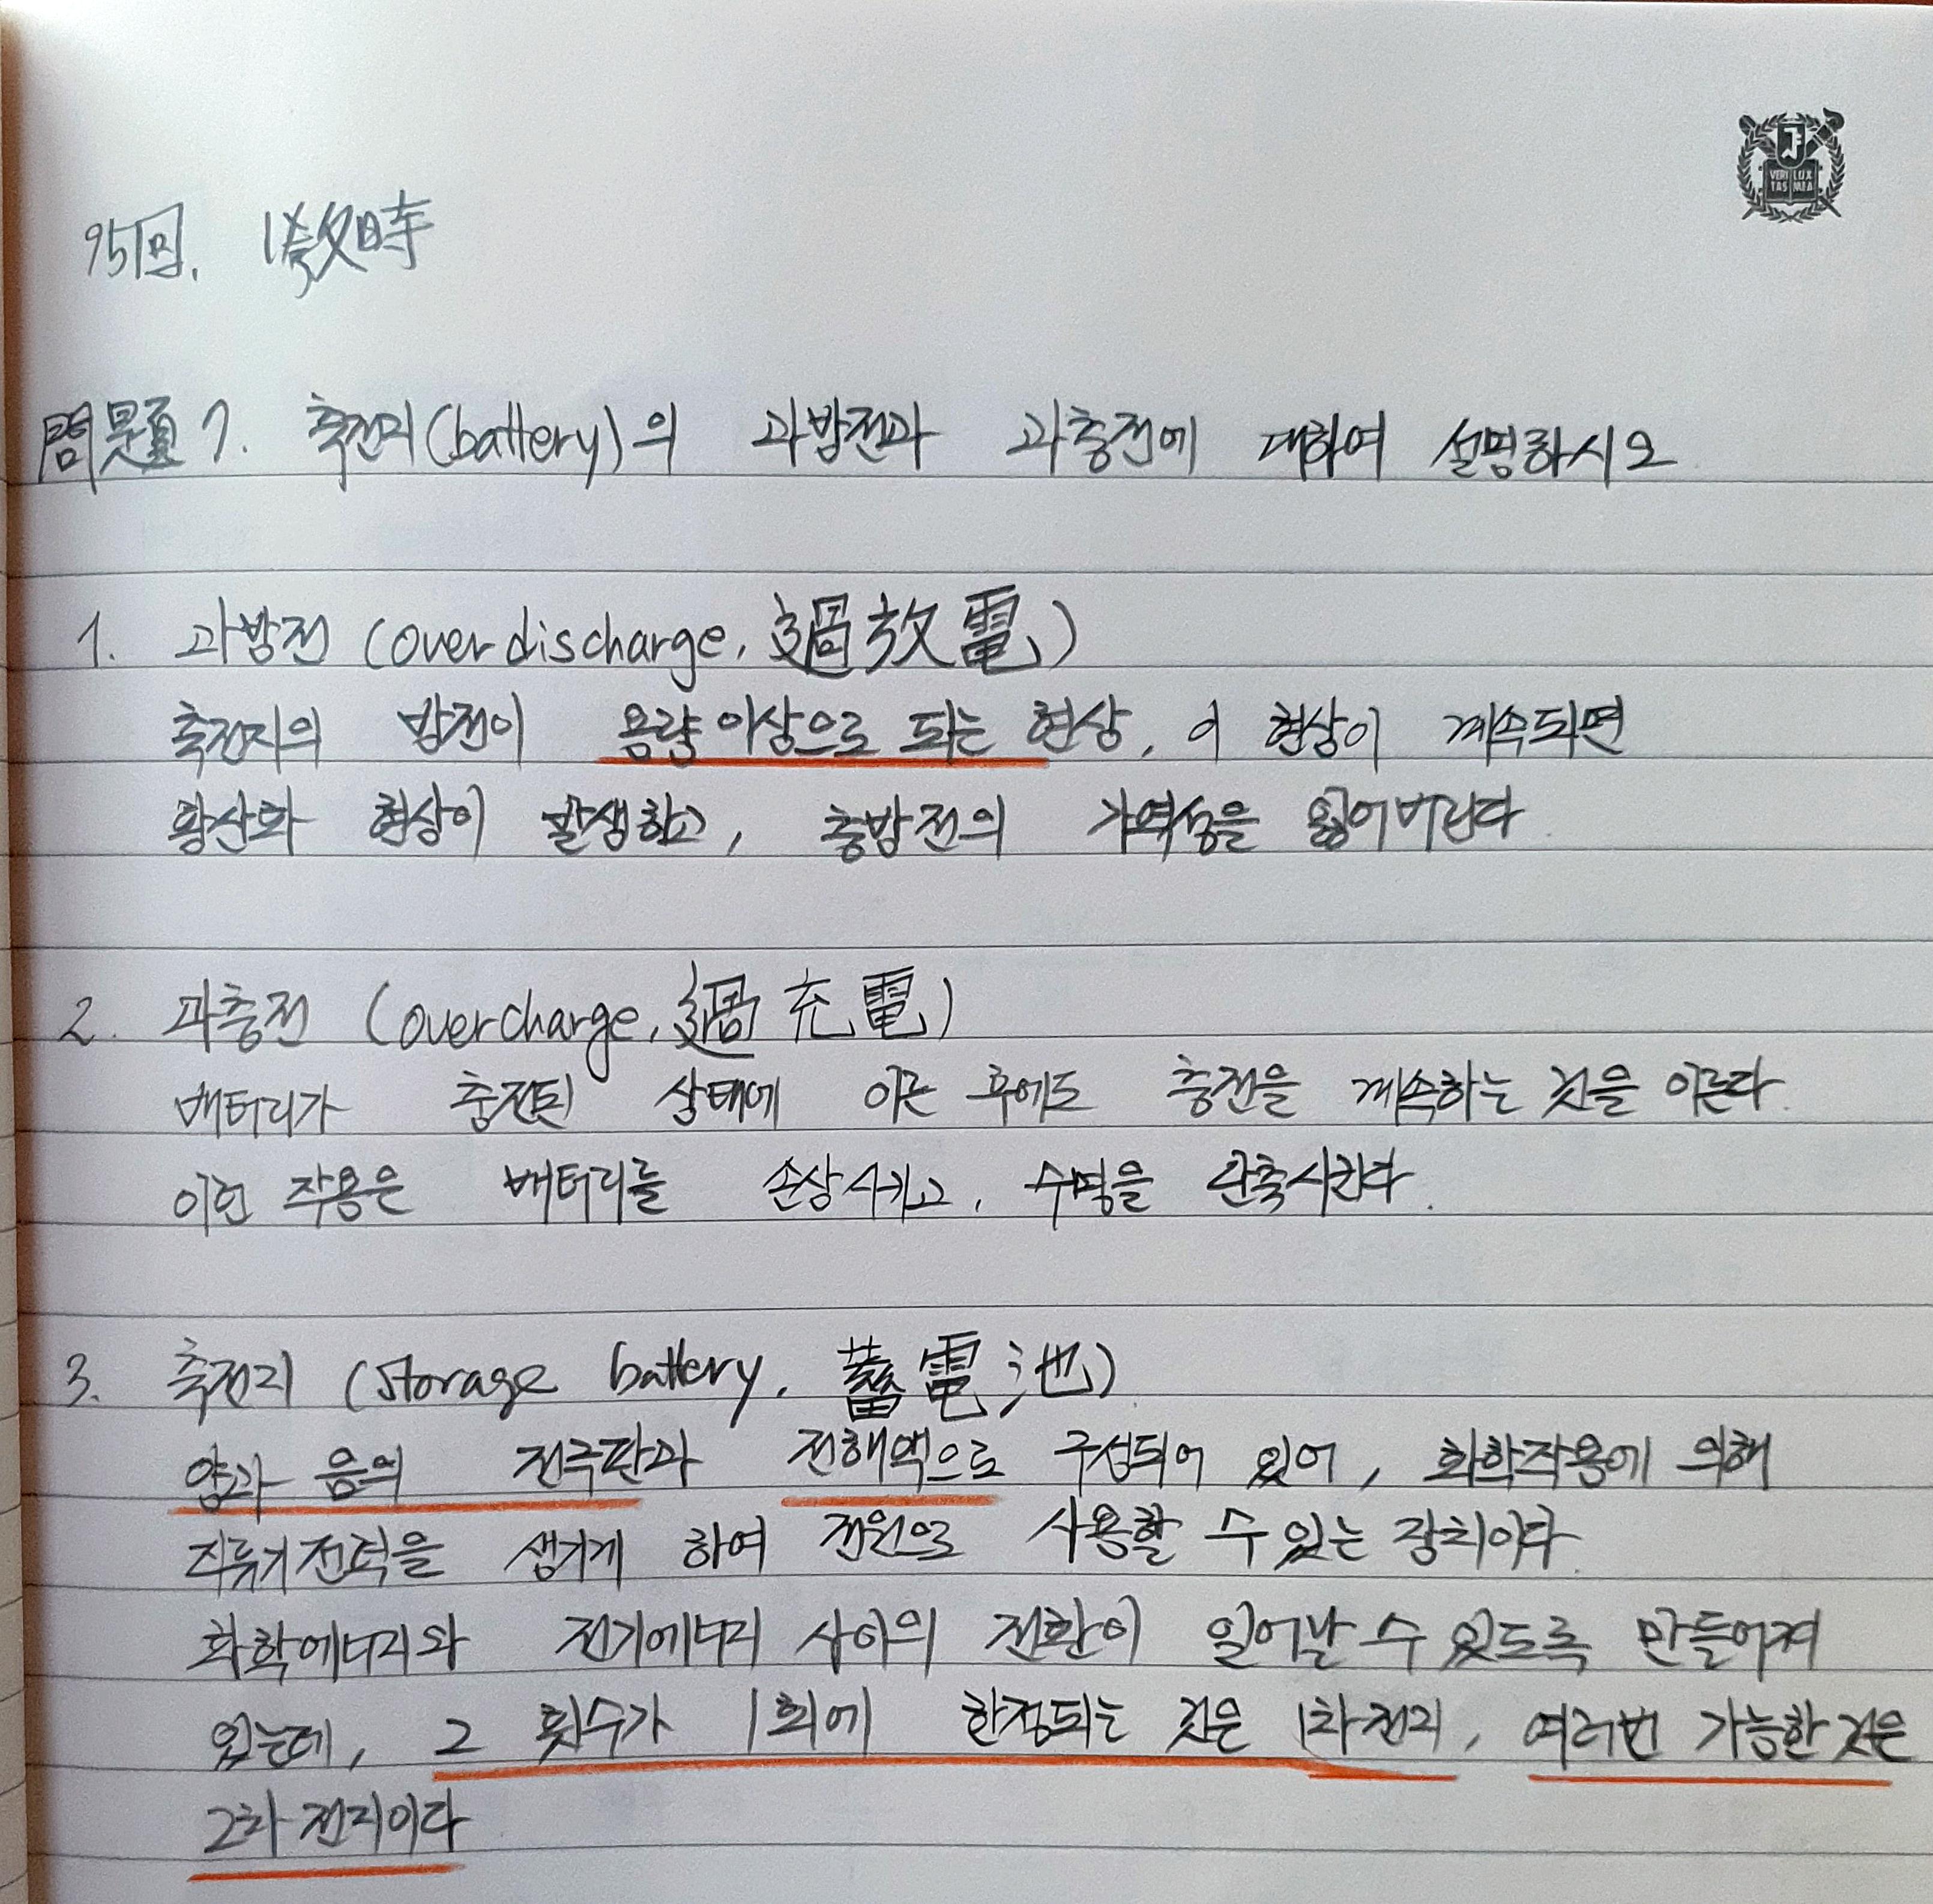 VERI LUX
TAS MEA
95回. 1教時
問題 7. 축전지(battery)의 과방전과 과충전에 대하여 설명하시오
1. 과방전 (over discharge, 過放電)
축전지의 방전이 용량 이상으로 되는 현상, 이 현상이 계속되면
황산화 현상이 발생하고, 충방전의 가역성을 잃어버린다.
2. 과충전 (overcharge, 過充電)
배터리가 충전된 상태에 이른 후에도 충전을 계속하는 것을 이른다.
이런 작용은 배터리를 손상시키고, 수명을 단축시킨다.
3. 축전지 (storage battery, 蓄電池)
양과 음의 전극판과 전해액으로 구성되어 있어, 화학작용에 의해
직류기전력을 생기게 하여 전원으로 사용할 수 있는 장치이다.
화학에너지와 전기에너지 사이의 전환이 일어날 수 있도록 만들어져
있는데, 그 횟수가 1회에 한정되는 것은 1차전지, 여러번 가능한 것은
2차 전지이다